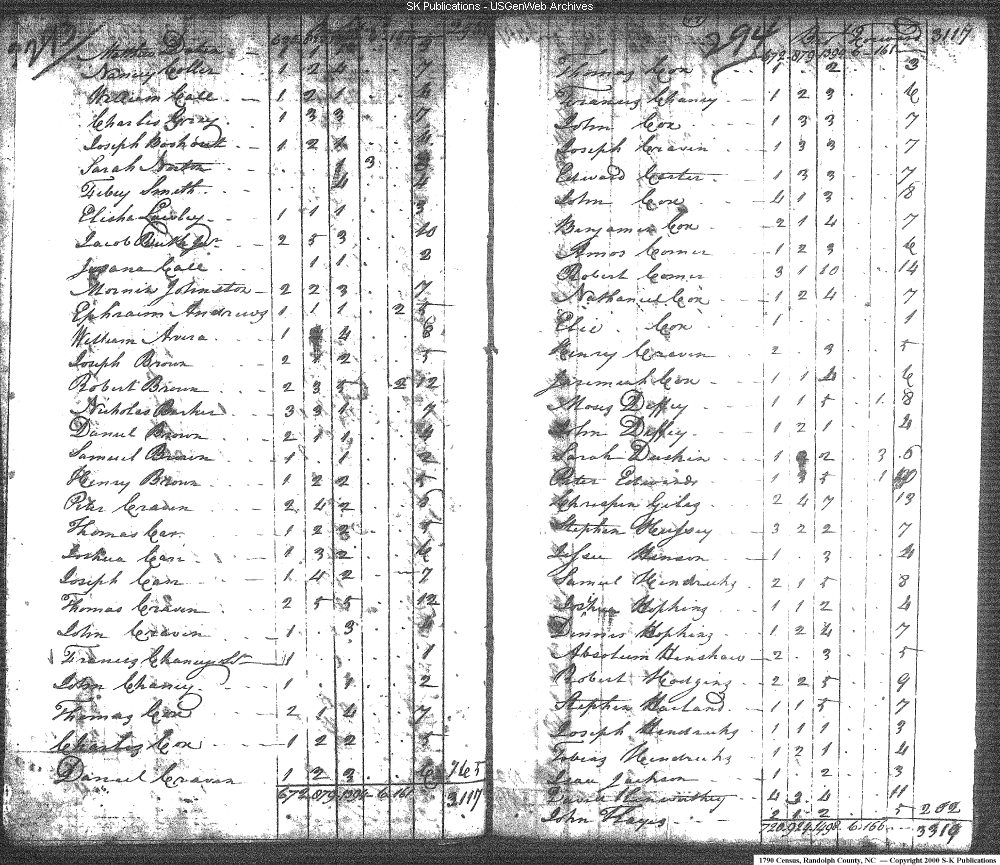 SK Publications - USGenWeb Archives
293
Nancy Coller 1 2 4 7
William Call 1 2 1 4
Charles Gorry 1 3 3 7
Joseph 1 2 1 4
Sarah Norton 1 3
Febey Smith 4 4
Elisha Lawley 1 1 1 3
Jacob 2 5 3 10
Call 1 1 2
Morning Johnston 2 2 3 7
Ephraim Andrews 1 1 1 2 5
William Arvira 1 4
Joseph Brown 2 1 2 5
Robert Brown 2 3 5 2 12
Nicholas Barker 3 3 1 7
Daniel Brown 2 1 1 4
Samuel Brown 1 1
Henry Brown 1 2 2 5
Peter Craven 2 4 2 8
Thomas Car 1 2 2 5
Joshua Carr 1 3 2 6
Joseph Carr 1 4 2 7
Thomas Craven 2 5 5 12
John Craven 1 3 4
Francis Chaney 1 1
John Chaney 1 1 2
Thomas Cox 2 1 4 7
Charles Cox 1 2 2 5
Daniel Craven 1 2 3 6 765
672 879 1394 6 161 3117
294
Forward 3117
672 879 1394 6 161
Thomas Cox 1 2 3
Francis Chaney 1 2 3 6
John Cox 1 3 3 7
Joseph Craven 1 3 3 7
Edward Carter 1 3 3 7
John Cox 4 1 3 8
Benjamin Cox 2 1 4 7
Amos Comer 1 2 3 6
Robert Comer 3 1 10 14
Nathaniel Cox 1 2 4 7
Cox 1 1
Henry Craven 2 3 5
Jerimiah Cox 1 1 4 6
Deffey 1 1 5 1 8
John Deffey 1 2 1 4
Sarah Duskin 1 2 3 6
Peter Edwards 1 3 5 1 10
Gilas 2 4 7 13
Stephen Hussey 3 2 2 7
Henson 1 3 4
Samuel Hendricks 2 1 5 8
Joshua Hopkins 1 1 2 4
Dennis Hopkins 1 2 4 7
Absolum Henshaw 2 3 5
Robert Hodgins 2 2 5 9
Stephen Harland 1 1 5 7
Joseph Hendricks 1 1 1 3
Tobias Hendricks 1 2 1 4
Isaac Jackson 1 2 3
David Kenworthy 4 3 4 11
John Hayes 2 1 2 5 202
720 924 1498 6 166 3319
1790 Census, Randolph County, NC — Copyright 2000 S-K Publications